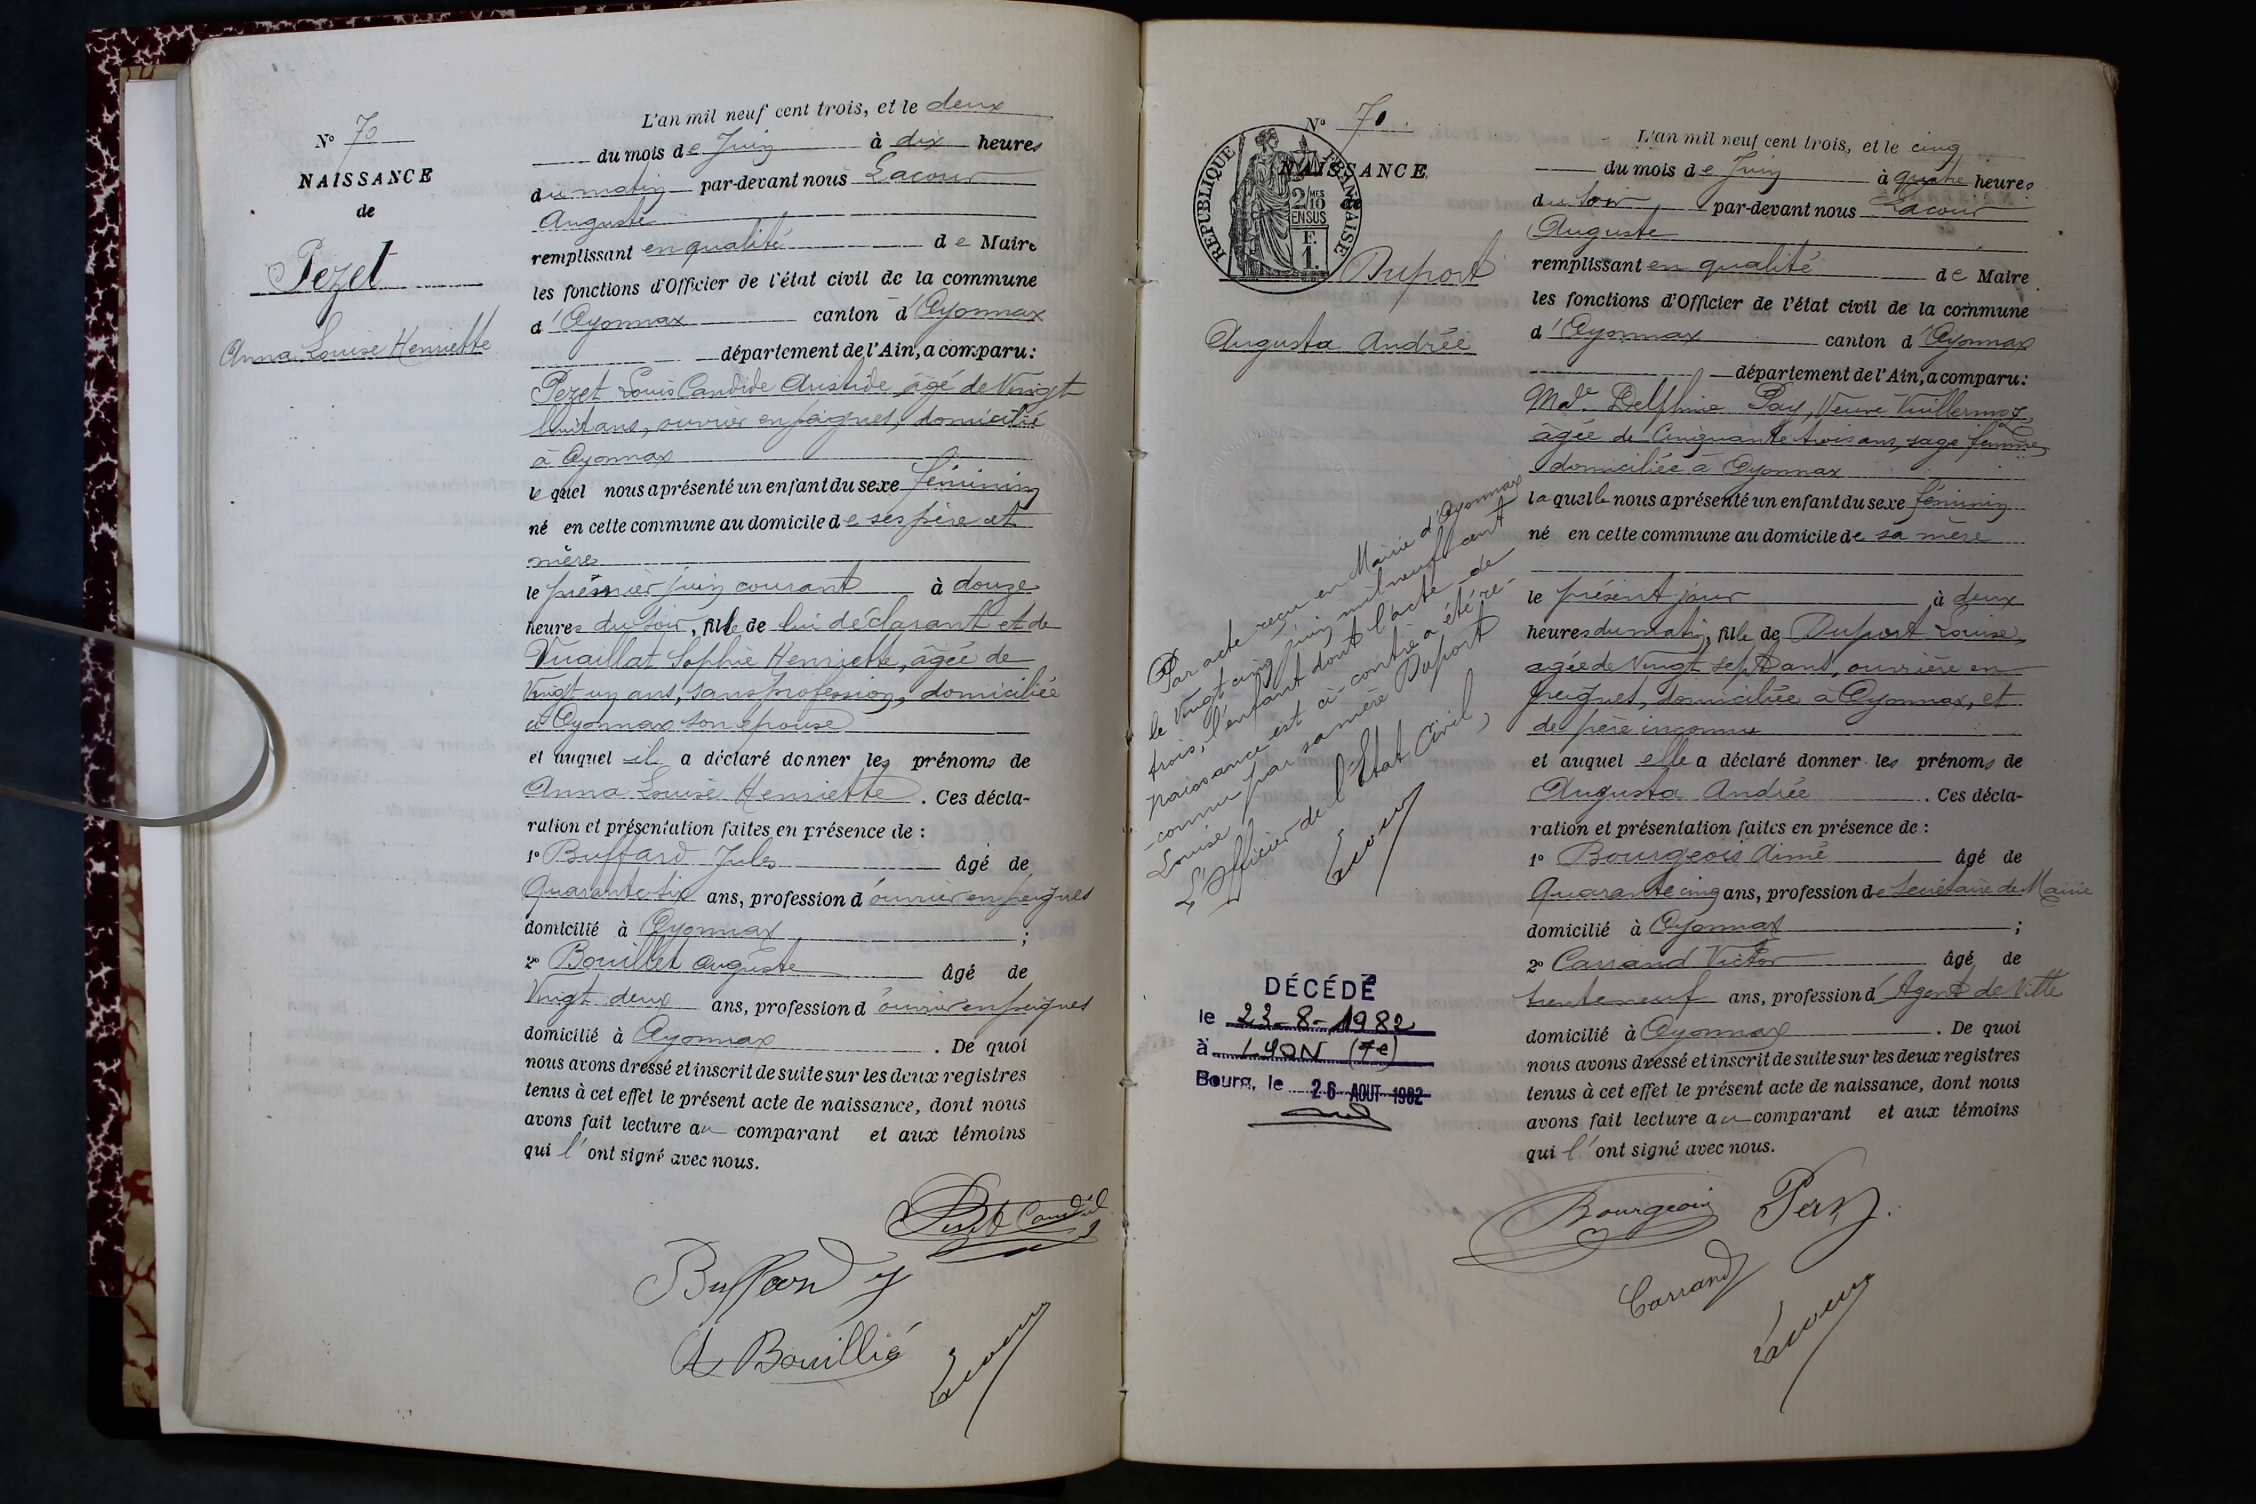 N° 70
NAISSANCE
de
Pezet
Anna Louise Henriette
L'an mil neuf cent trois, et le deux
du mois de Juin à dix heures
du matin par-devant nous Lacour
Auguste
remplissant en qualité de Maire
les fonctions d'Officier de l'état civil de la commune
d'Oyonnax canton d'Oyonnax
département de l'Ain, a comparu:
Pezet Louis Candide Aristide, âgé de Vingt
huit ans, ouvrier en peignes, domicilié
à Oyonnax
lequel nous a présenté un enfant du sexe féminin
né en cette commune au domicile de ses père et
mère
le premier juin courant à douze
heures du soir, fille de lui déclarant et de
Vuaillat Sophie Henriette, âgée de
Vingt un ans, sans profession, domiciliée
à Oyonnax son épouse
et auquel il a déclaré donner les prénoms de
Anna Louise Henriette. Ces décla-
ration et présentation faites en présence de :
1° Buffard Jules âgé de
Quarante six ans, profession d'ouvrier en peignes
domicilié à Oyonnax ;
2° Bouillet Auguste âgé de
Vingt deux ans, profession d'ouvrier en peignes
domicilié à Oyonnax. De quoi
nous avons dressé et inscrit de suite sur les deux registres
tenus à cet effet le présent acte de naissance, dont nous
avons fait lecture au comparant et aux témoins
qui l'ont signé avec nous.
Pezet Candide
Buffard J
A Bouillié
Lacour
N° 70
NAISSANCE
de
REPUBLIQUE FRANCAISE
2/10 MES
EN SUS
F.
1.
Duport
Augusta Andrée
Par acte reçu en Mairie d'Oyonnax
le Vingt cinq juin mil neuf cent
trois, l'enfant dont l'acte de
naissance est ci-contre a été re-
-connue par sa mère Duport
Louise
L'Officier de l'Etat Civil,
Lacour
DÉCÉDÉ
le 23-8-1982
à LYON (7e)
Bourg, le 26 AOUT 1982
L'an mil neuf cent trois, et le cinq
du mois de Juin à quatre heures
du soir par-devant nous Lacour
Auguste
remplissant en qualité de Maire
les fonctions d'Officier de l'état civil de la commune
d'Oyonnax canton d'Oyonnax
département de l'Ain, a comparu:
Mde Delphine Pay, Veuve Vuillermoz,
âgée de Cinquante trois ans, sage femme
domiciliée à Oyonnax
laquelle nous a présenté un enfant du sexe féminin
né en cette commune au domicile de sa mère
le présent jour à deux
heures du matin, fille de Duport Louise,
agée de Vingt sept ans, ouvrière en
peignes, domiciliée à Oyonnax, et
de père inconnu
et auquel elle a déclaré donner les prénoms de
Augusta Andrée. Ces décla-
ration et présentation faites en présence de :
1° Bourgeois Aimé âgé de
Quarante cinq ans, profession de Secrétaire de Mairie
domicilié à Oyonnax ;
2° Carrand Victor âgé de
trente neuf ans, profession d'Agent de Ville
domicilié à Oyonnax. De quoi
nous avons dressé et inscrit de suite sur les deux registres
tenus à cet effet le présent acte de naissance, dont nous
avons fait lecture au comparant et aux témoins
qui l'ont signé avec nous.
Bourgeois
Carrand
Lacour